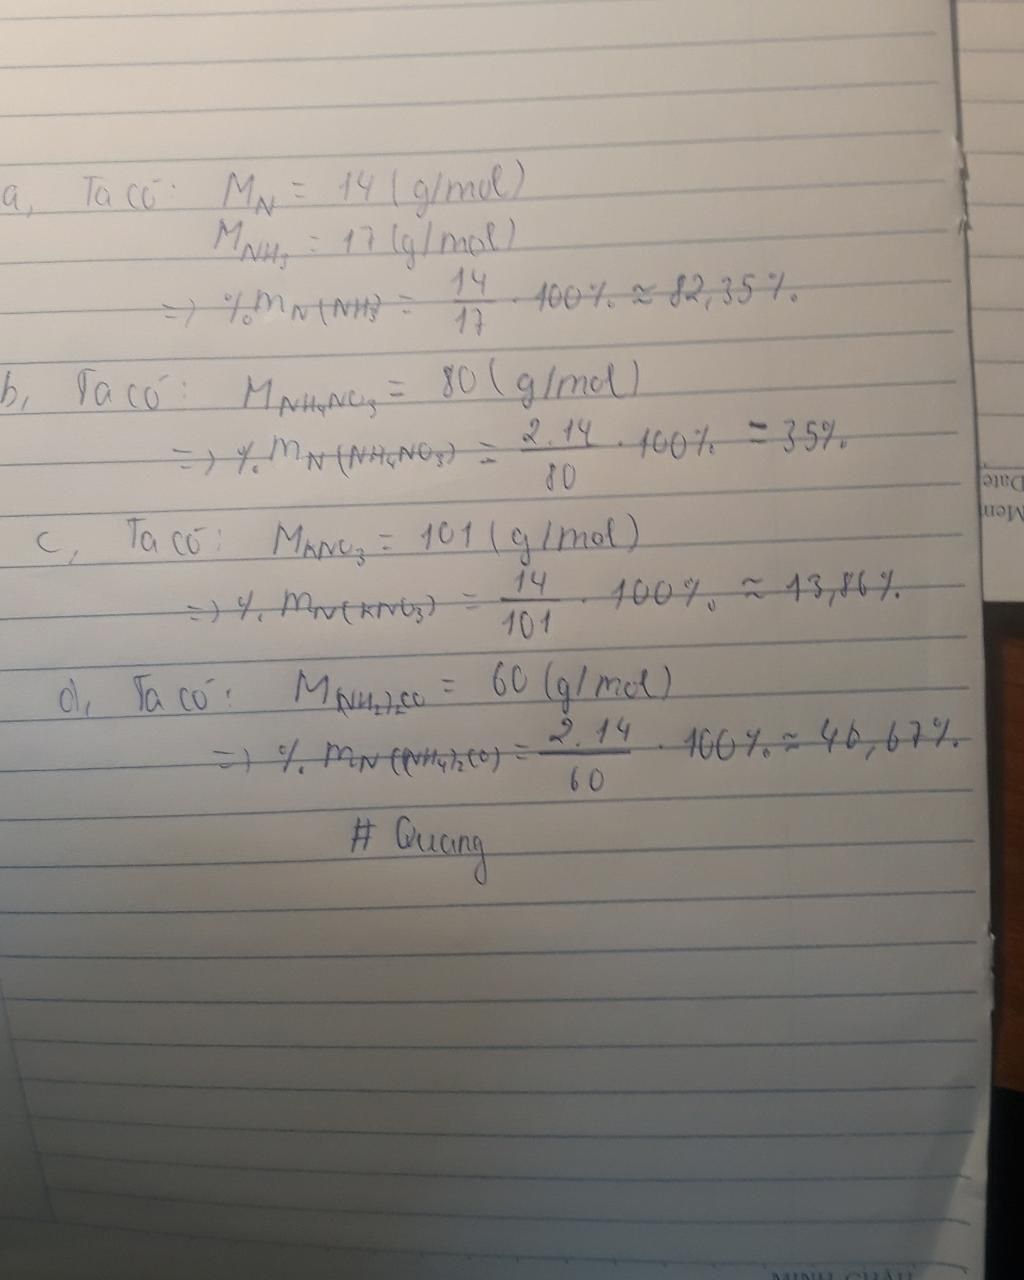 a, Ta có: M_N = 14 (g/mol)
M_NH₃ = 17 (g/mol)
=> %m_N(NH₃) = 14/17 . 100% ≈ 82,35%.
b, Ta có: M_NH₄NO₃ = 80 (g/mol)
=> %m_N(NH₄NO₃) = 2.14/80 . 100% = 35%.
c, Ta có: M_KNO₃ = 101 (g/mol)
=> %m_N(KNO₃) = 14/101 . 100% ≈ 13,86%.
d, Ta có: M_(NH₂)₂CO = 60 (g/mol)
=> %m_N((NH₄)₂CO) = 2.14/60 . 100% ≈ 46,67%.
# Quang
Date
Mem